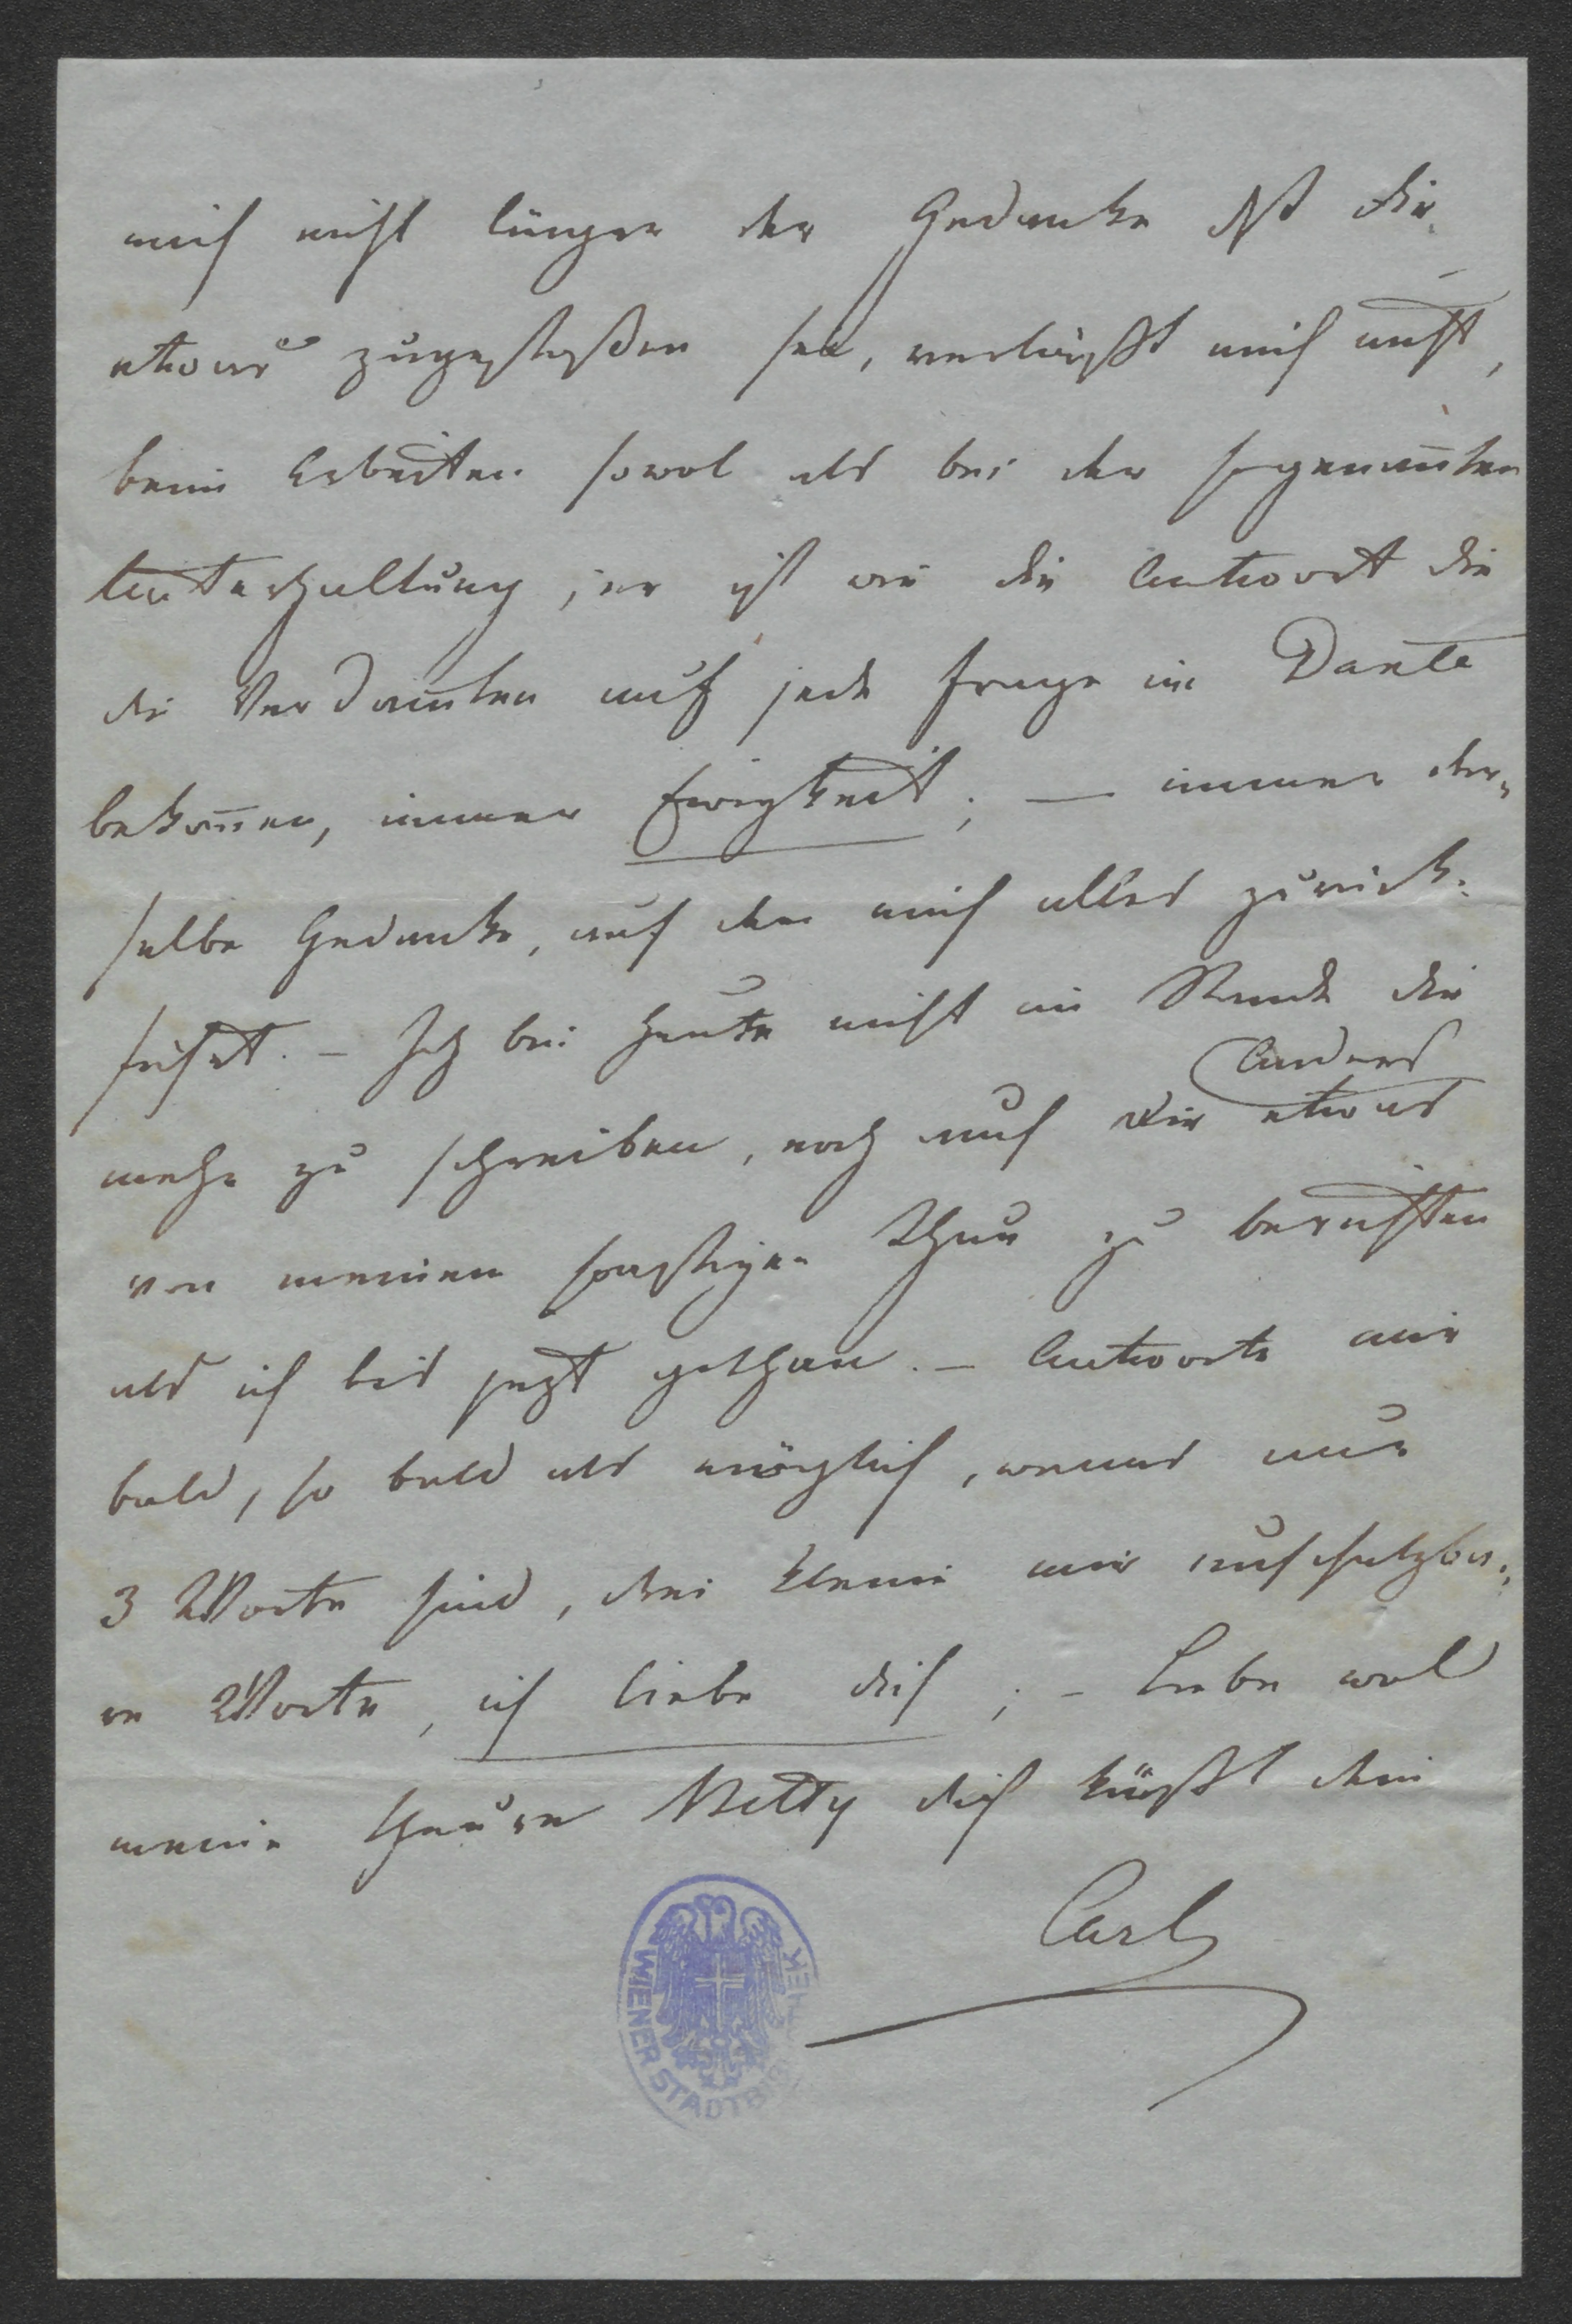 mich nicht länger der Gedanke ist dir
etwas zugestoßen sei, verläßt mich nicht,
beim Arbeiten sowol als bei der sogenan̄ten
Unterhaltung, er ist wie die Antwort die
die Verdam̄ten auf jede Frage im Dante
bekom̄en, immer Ewigkeit; — immer der„
selbe Gedanke, auf den mich alles zurück„
führt. – Ich bin heute nicht im Stande dir
Anders
mehr zu schreiben, noch auch dir etwas
von meinem sonstigen Thun zu berichten
als ich bis jezt gethan. – Antworte mir
bald, so bald als möglich, wenns nur
3 Worte sind, drei kleine mir unschätzba„
re Worte, ich liebe dich; – Lebe wol
meine theure Netty dich küßt dein
Carl
WIENER STADTBIBLIOTHEK